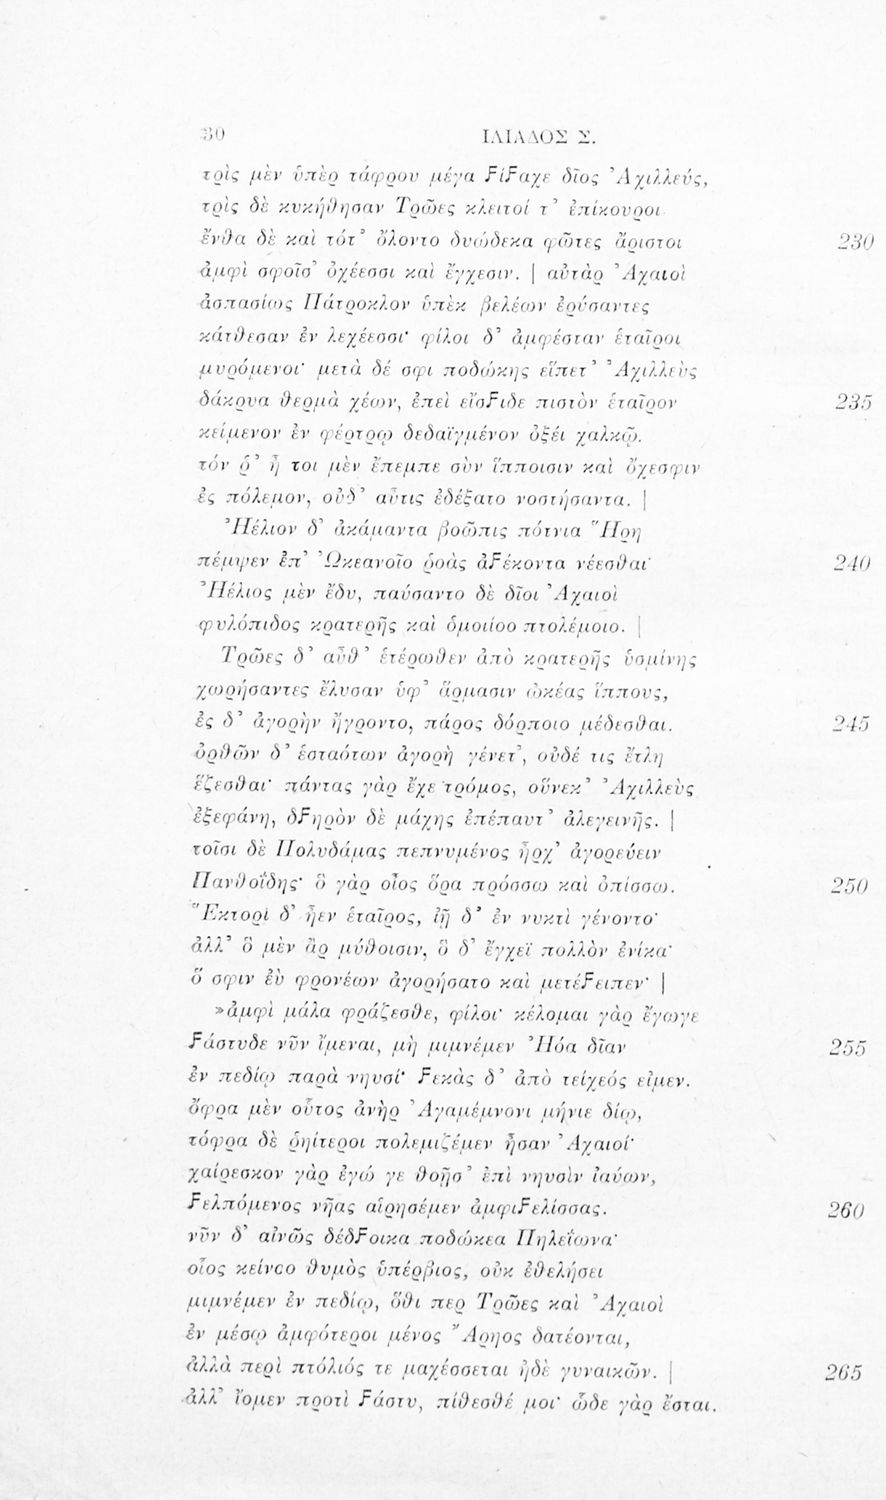 30 ΙΛΙΑΔΟΣ Σ.
τρὶς μὲν ὑπὲρ τάφρου μέγα ϝίϝαχε δῖος Ἀχιλλεύς,
τρὶς δὲ κυκήθησαν Τρῶες κλειτοί τ’ ἐπίκουροι·
ἔνθα δὲ καὶ τότ’ ὄλοντο δυώδεκα φῶτες ἄριστοι 230
ἀμφὶ σφοῖσ’ ὀχέεσσι καὶ ἔγχεσιν. | αὐτὰρ Ἀχαιοὶ
ἀσπασίως Πάτροκλον ὑπὲκ βελέων ἐρύσαντες
κάτθεσαν ἐν λεχέεσσι· φίλοι δ’ ἀμφέσταν ἑταῖροι
μυρόμενοι· μετὰ δέ σφι ποδώκης εἵπετ’ Ἀχιλλεὺς
δάκρυα θερμὰ χέων, ἐπεὶ εἴσϝιδε πιστὸν ἑταῖρον 235
κείμενον ἐν φέρτρῳ δεδαϊγμένον ὀξέι χαλκῷ.
τόν ῥ’ ἦ τοι μὲν ἔπεμπε σὺν ἵπποισιν καὶ ὄχεσφιν
ἐς πόλεμον, οὐδ’ αὖτις ἐδέξατο νοστήσαντα. |
Ἠέλιον δ’ ἀκάμαντα βοῶπις πότνια Ἥρη
πέμψεν ἐπ’ Ὠκεανοῖο ῥοὰς ἀϝέκοντα νέεσθαι· 240
Ἠέλιος μὲν ἔδυ, παύσαντο δὲ δῖοι Ἀχαιοὶ
φυλόπιδος κρατερῆς καὶ ὁμοιίοο πτολέμοιο. |
Τρῶες δ’ αὖθ’ ἑτέρωθεν ἀπὸ κρατερῆς ὑσμίνης
χωρήσαντες ἔλυσαν ὑφ’ ἅρμασιν ὠκέας ἵππους,
ἐς δ’ ἀγορὴν ἤγροντο, πάρος δόρποιο μέδεσθαι. 245
ὀρθῶν δ’ ἑσταότων ἀγορὴ γένετ’, οὐδέ τις ἔτλη
ἕζεσθαι· πάντας γὰρ ἔχε τρόμος, οὕνεκ’ Ἀχιλλεὺς
ἐξεφάνη, δϝηρὸν δὲ μάχης ἐπέπαυτ’ ἀλεγεινῆς. |
τοῖσι δὲ Πολυδάμας πεπνυμένος ἦρχ’ ἀγορεύειν
Πανθοΐδης· ὃ γὰρ οἶος ὅρα πρόσσω καὶ ὀπίσσω. 250
Ἕκτορι δ’ ἦεν ἑταῖρος, ἰῇ δ’ ἐν νυκτὶ γένοντο·
ἀλλ’ ὃ μὲν ἂρ μύθοισιν, ὃ δ’ ἔγχεϊ πολλὸν ἐνίκα·
ὅ σφιν ἐὺ φρονέων ἀγορήσατο καὶ μετέϝειπεν· |
»ἀμφὶ μάλα φράζεσθε, φίλοι· κέλομαι γὰρ ἔγωγε
ϝάστυδε νῦν ἴμεναι, μὴ μιμνέμεν Ἠόα δῖαν 255
ἐν πεδίῳ παρὰ νηυσί· ϝεκὰς δ’ ἀπὸ τείχεός εἰμεν.
ὄφρα μὲν οὗτος ἀνὴρ Ἀγαμέμνονι μήνιε δίῳ,
τόφρα δὲ ῥηίτεροι πολεμιζέμεν ἦσαν Ἀχαιοί·
χαίρεσκον γὰρ ἐγώ γε θοῇσ’ ἐπὶ νηυσὶν ἰαύων,
ϝελπόμενος νῆας αἱρησέμεν ἀμφιϝελίσσας. 260
νῦν δ’ αἰνῶς δέδϝοικα ποδώκεα Πηλεΐωνα·
οἷος κείνοο θυμὸς ὑπέρβιος, οὐκ ἐθελήσει
μιμνέμεν ἐν πεδίῳ, ὅθι περ Τρῶες καὶ Ἀχαιοὶ
ἐν μέσῳ ἀμφότεροι μένος Ἄρηος δατέονται,
ἀλλὰ περὶ πτόλιός τε μαχέσσεται ἠδὲ γυναικῶν. | 265
ἀλλ’ ἴομεν προτὶ ϝάστυ, πίθεσθέ μοι· ὧδε γὰρ ἔσται.